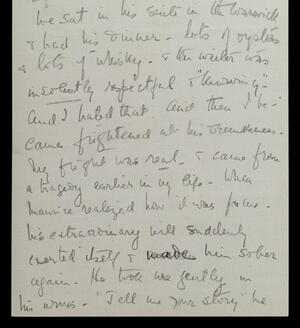 we sat in his suite in the Warwick
& had his dinner - lots of oysters
& lots of whiskey - & the waiter was
insolently respectful & "knowing" -
And I hated that and then I be-
came frightened at his drunkeness.
My fright was real - & came from
a tragedy earlier in my life - When
Maurice realized how it was for me -
his extraordinary will suddenly
exerted itself & made him sober
again. He took me gently in
his arms - "Tell me your story" he